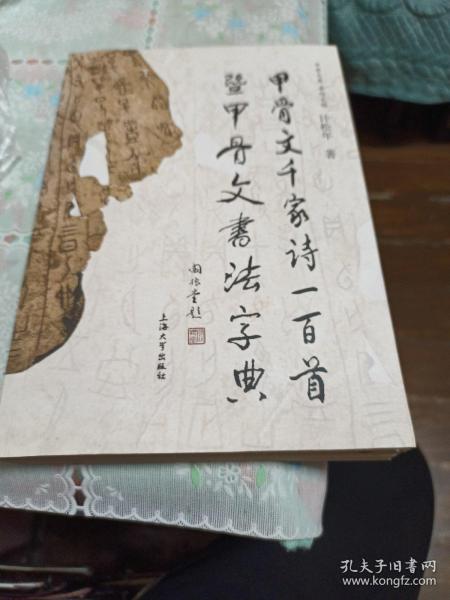 甲骨文千家诗一百首
暨甲骨文书法字典
著
上海大学出版社
孔夫子旧书网
www.kongfz.com